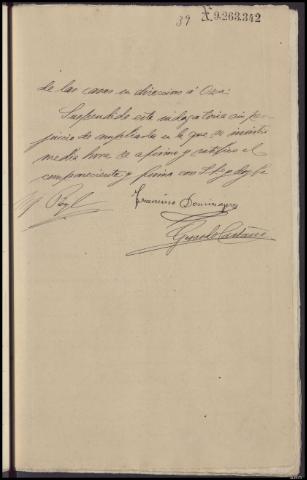 39 N.9.263.342
de las casas en direccion á Osa:
Suspendido esta indagatoria sin per
juicio de ampliarla en lo que se
media hora se afirma y ratifica el
compareciente y firma con S.S. y doy fe
Francisco Dominguez
Gerardo Castaño